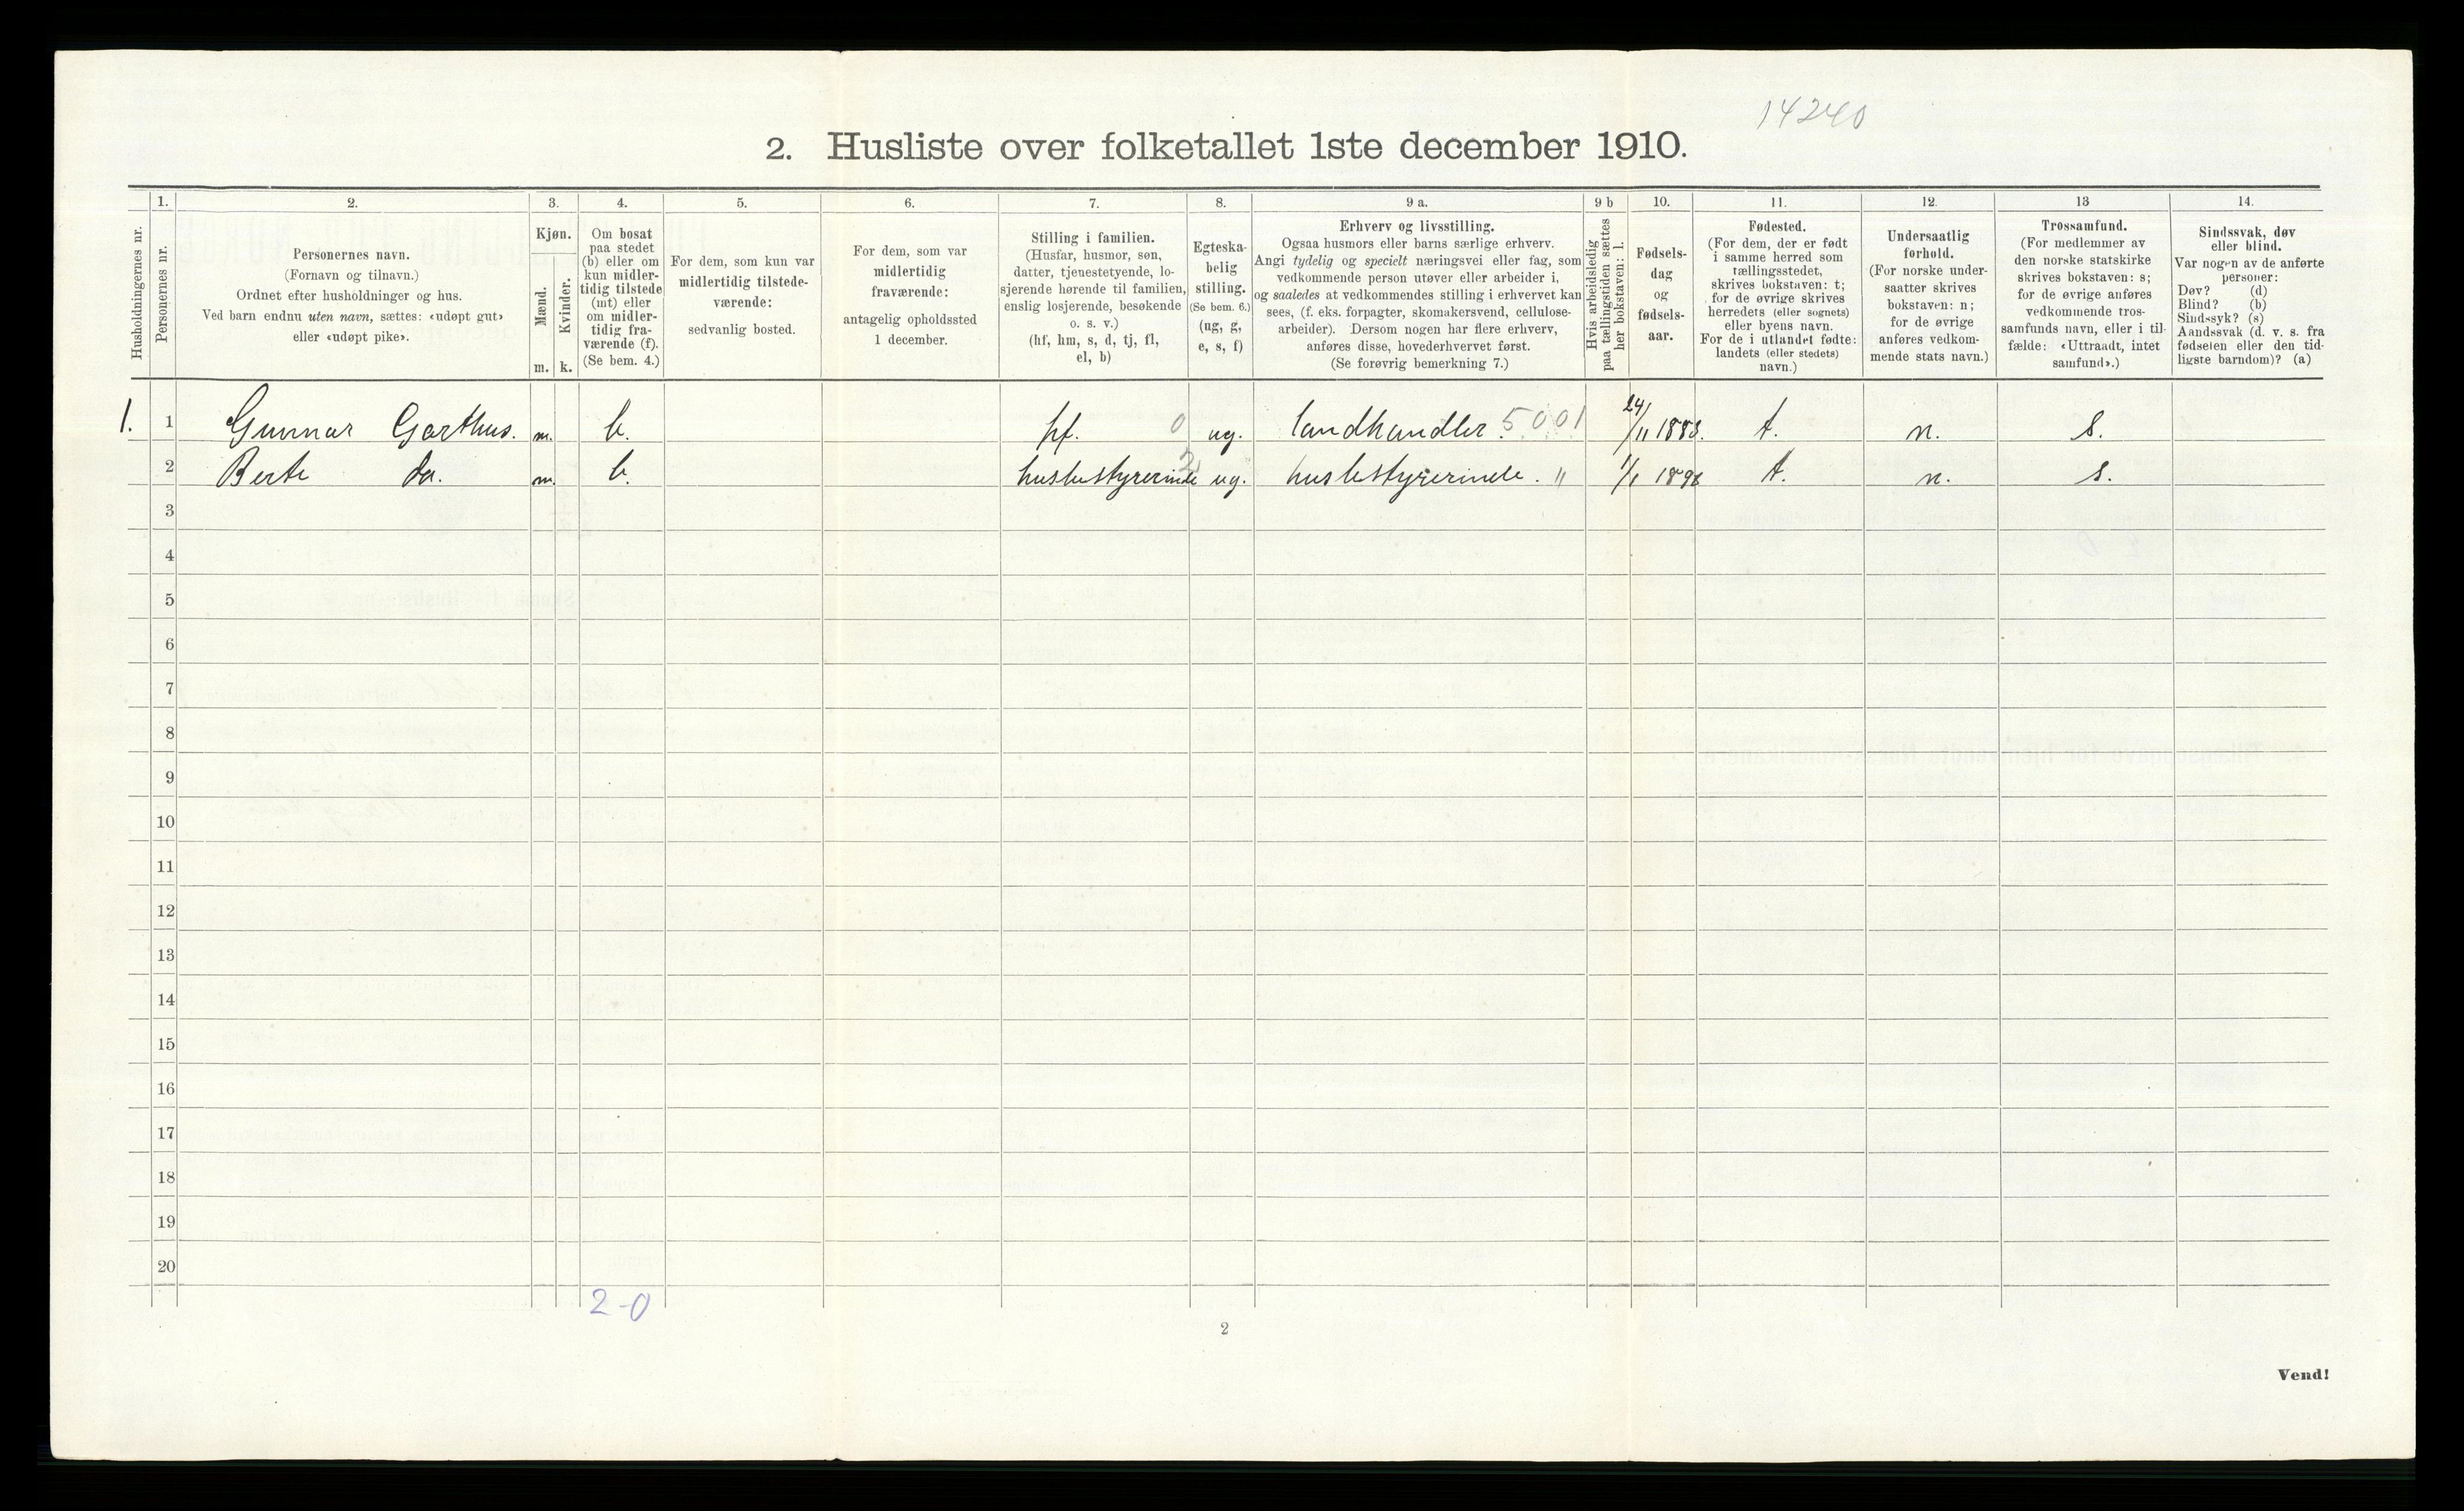 14240
2. Husliste over folketallet 1ste december 1910.
Husholdningernes nr.
1. 2. 3. 4. 5. 6. 7. 8. 9 a. 9 b 10. 11. 12. 13 14.
Personernes nr.
Personernes navn.
(Fornavn og tilnavn.)
Ordnet efter husholdninger og hus.
Ved barn endnu uten navn, sættes: «udøpt gut»
eller «udøpt pike».
Kjøn.
Mænd.
Kvinder.
m. k.
Om bosat
paa stedet
(b) eller om
kun midler-
tidig tilstede
(mt) eller
om midler-
tidig fra-
værende (f).
(Se bem. 4.)
For dem, som kun var
midlertidig tilstede-
værende:
sedvanlig bosted.
For dem, som var
midlertidig
fraværende:
antagelig opholdssted
1 december.
Stilling i familien.
(Husfar, husmor, søn,
datter, tjenestetyende, lo-
sjerende hørende til familien,
enslig losjerende, besøkende
o. s. v.)
(hf, hm, s, d, tj, fl,
el, b)
Egteska-
belig
stilling.
(Se bem. 6.)
(ug, g,
e, s, f)
Erhverv og livsstilling.
Ogsaa husmors eller barns særlige erhverv.
Angi tydelig og specielt næringsvei eller fag, som
vedkommende person utøver eller arbeider i,
og saaledes at vedkommendes stilling i erhvervet kan
sees, (f. eks. forpagter, skomakersvend, cellulose-
arbeider). Dersom nogen har flere erhverv,
anføres disse, hovederhvervet først.
(Se forøvrig bemerkning 7.)
Hvis arbeidsledig
paa tællingstiden sættes
her bokstaven: l.
Fødsels-
dag
og
fødsels-
aar.
Fødested.
(For dem, der er født
i samme herred som
tællingsstedet,
skrives bokstaven: t;
for de øvrige skrives
herredets (eller sognets)
eller byens navn.
For de i utlandet fødte:
landets (eller stedets)
navn.)
Undersaatlig
forhold.
(For norske under-
saatter skrives
bokstaven: n;
for de øvrige
anføres vedkom-
mende stats navn.)
Trossamfund.
(For medlemmer av
den norske statskirke
skrives bokstaven: s;
for de øvrige anføres
vedkommende tros-
samfunds navn, eller i til-
fælde: «Uttraadt, intet
samfund».)
Sindssvak, døv
eller blind.
Var nogen av de anførte
personer:
Døv? (d)
Blind? (b)
Sindssyk? (s)
Aandssvak (d. v. s. fra
fødselen eller den tid-
ligste barndom)? (a)
1. 1 Gunnar Garthus. m. b. hf. 0 ug. landhandler. 5001 24/11 1883. t. n. s.
2 Berte do. m. b. husbestyrerinde 2 ug. husbestyrerinde. " 1/1 1898 t. n. s.
3
4
5
6
7
8
9
10
11
12
13
14
15
16
17
18
19
20
2-0
2
Vend!